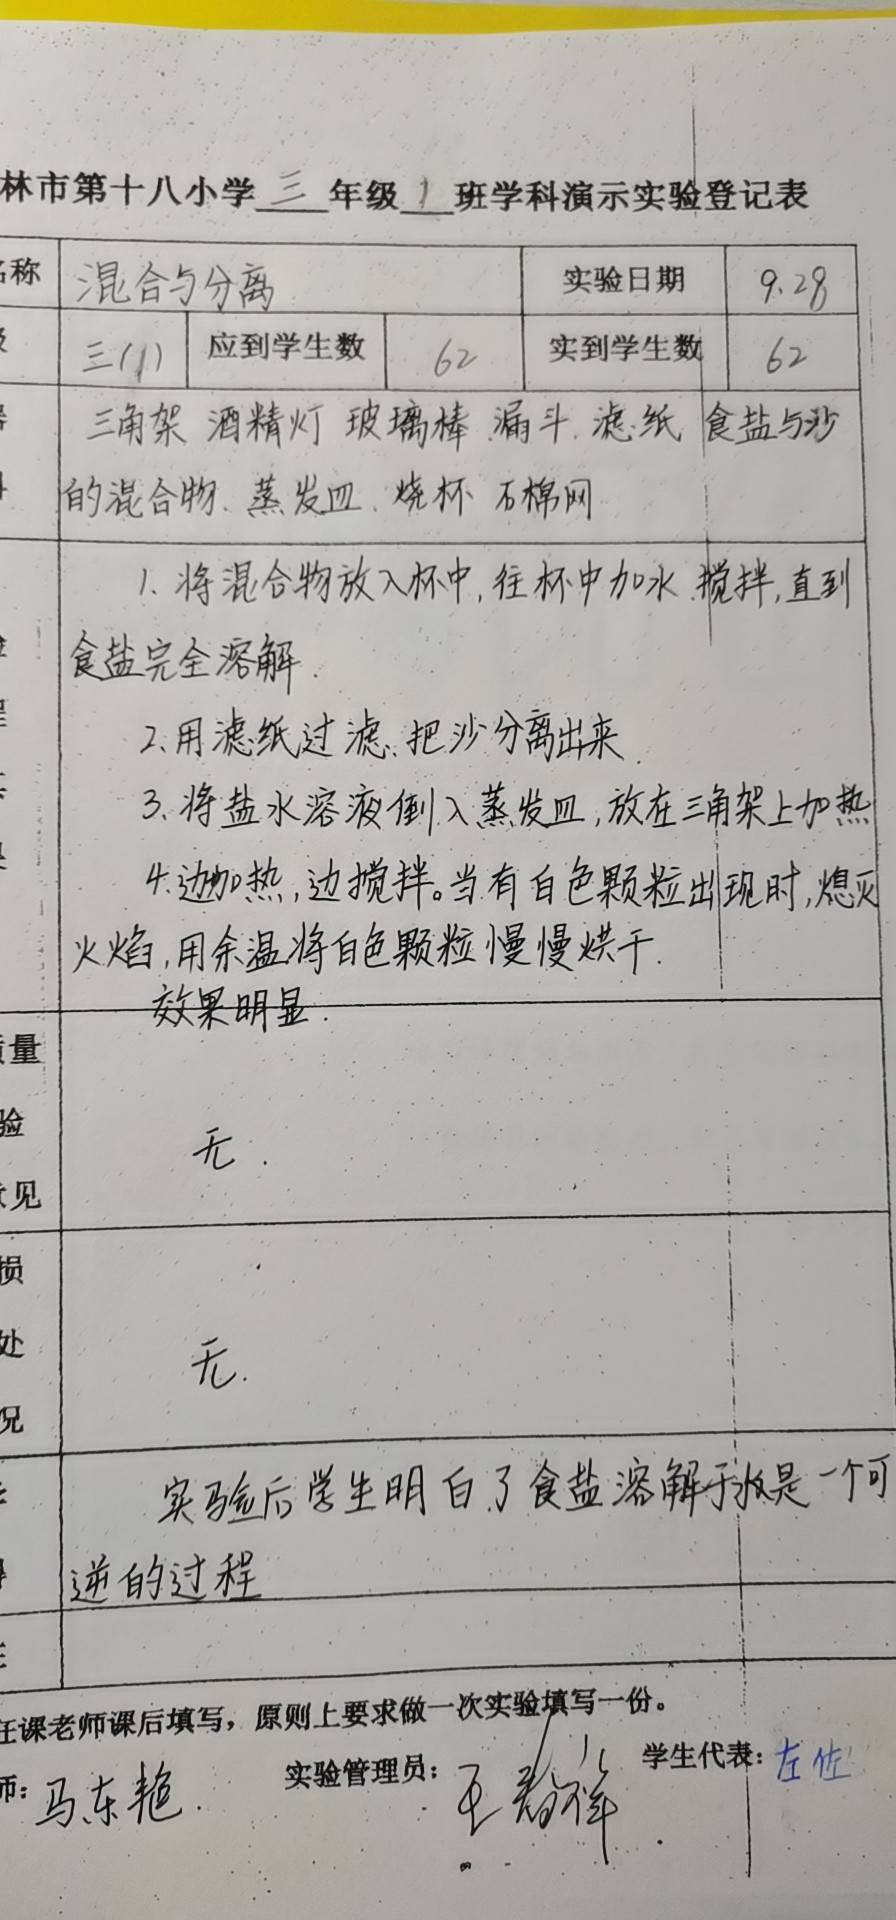 林市第十八小学 三 年级 1 班学科演示实验登记表
名称 混合与分离 实验日期 9.28
三(1) 应到学生数 62 实到学生数 62
三角架 酒精灯 玻璃棒 漏斗. 滤纸 食盐与沙
的混合物. 蒸发皿. 烧杯 石棉网
1. 将混合物放入杯中, 往杯中加水. 搅拌, 直到
食盐完全溶解.
2. 用滤纸过滤. 把沙分离出来.
3. 将盐水溶液倒入蒸发皿, 放在三角架上加热
4. 边加热, 边搅拌。当有白色颗粒出现时, 熄灭
火焰, 用余温将白色颗粒慢慢烘干.
效果明显.
质量
验
意见
无.
损
处
况
无.
实验后学生明白了食盐溶解于水是一个可
逆的过程
任课老师课后填写，原则上要求做一次实验填写一份。
师: 马东艳. 实验管理员: 学生代表: 左佐